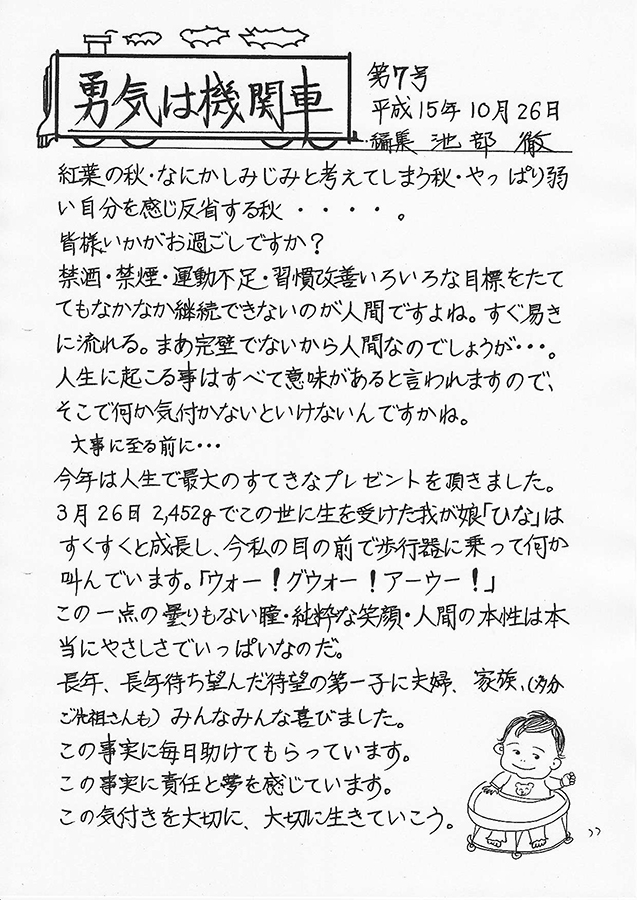 勇気は機関車
第7号
平成15年10月26日
編集 池部 徹
紅葉の秋・なにかしみじみと考えてしまう秋・やっぱり弱
い自分を感じ反省する秋 ・・・・。
皆様いかがお過ごしですか?
禁酒・禁煙・運動不足・習慣改善いろいろな目標をたて
てもなかなか継続できないのが人間ですよね。すぐ易き
に流れる。まあ完壁でないから人間なのでしょうが・・・。
人生に起こる事はすべて意味があると言われますので、
そこで何か気付かないといけないんですかね。
大事に至る前に・・・
今年は人生で最大のすてきなプレゼントを頂きました。
3月26日 2,452gでこの世に生を受けた我が娘「ひな」は
すくすくと成長し、今私の目の前で歩行器に乗って何か
叫んでいます。「ウォー!グウォー!アーウー!」
この一点の曇りもない瞳・純粋な笑顔・人間の本性は本
当にやさしさでいっぱいなのだ。
長年、長年待ち望んだ待望の第一子に夫婦、家族、(多分
ご先祖さんも)みんなみんな喜びました。
この事実に毎日助けてもらっています。
この事実に責任と夢を感じています。
この気付きを大切に、大切に生きていこう。